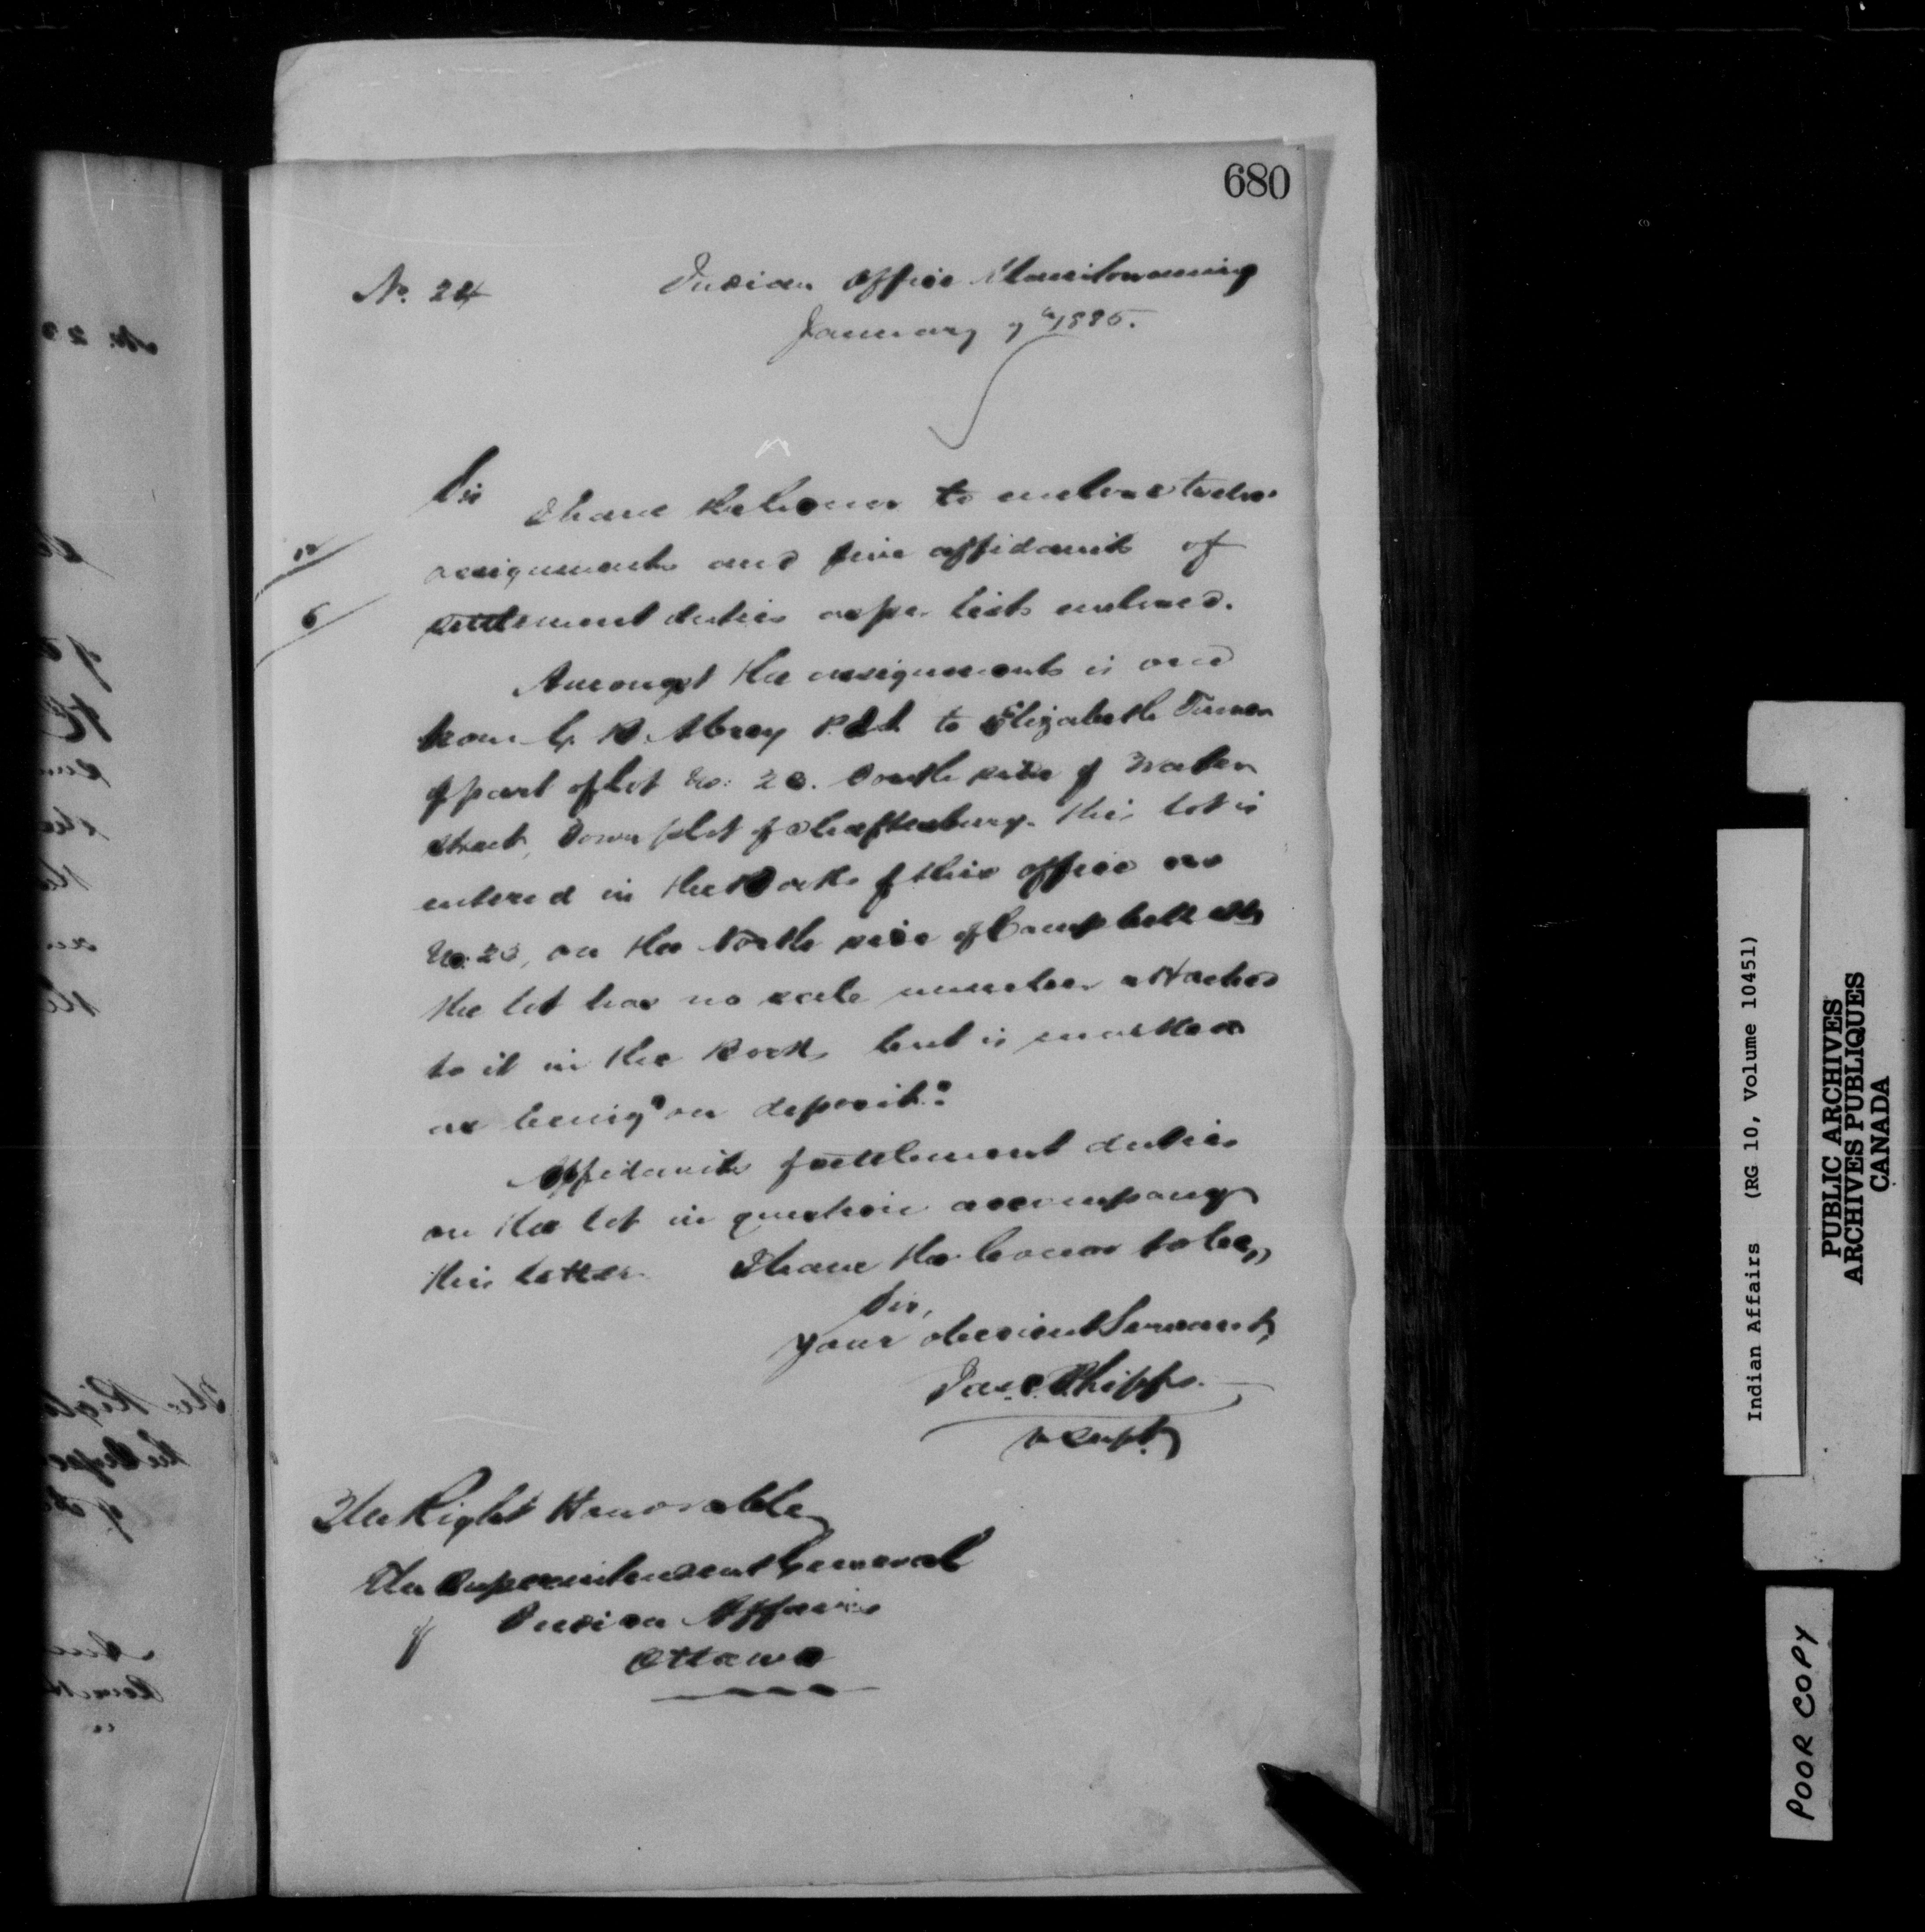 680
No. 24
Indian Office Manitowaning
January 9th 1885.
Sir
I have the honor to enclose twelve
assignments and five affidavits of
settlement duties as per lists enclosed.
12
5
Amongst the assignments is one
from G. B. Abrey P.L.S. to Elizabeth Turner
of part of lot No. 23. South side of Water
street, Town plot of Shaftesbury. this lot is
entered in the Books of this office as
No. 23, on the North side of Campbell St
the lot has no sale number attached
to it in the Book, but is marked
as being "on deposit."
Affidavits of settlement duties
on the lot in question accompany
this letter. I have the honor to be,
Sir,
your obedient Servant,
Jas. C. Phipps.
V. Supt.
The Right Honorable
The Superintendent General
of Indian Affairs
Ottawa
Indian Affairs (RG 10, Volume 10451)
PUBLIC ARCHIVES
ARCHIVES PUBLIQUES
CANADA
POOR COPY